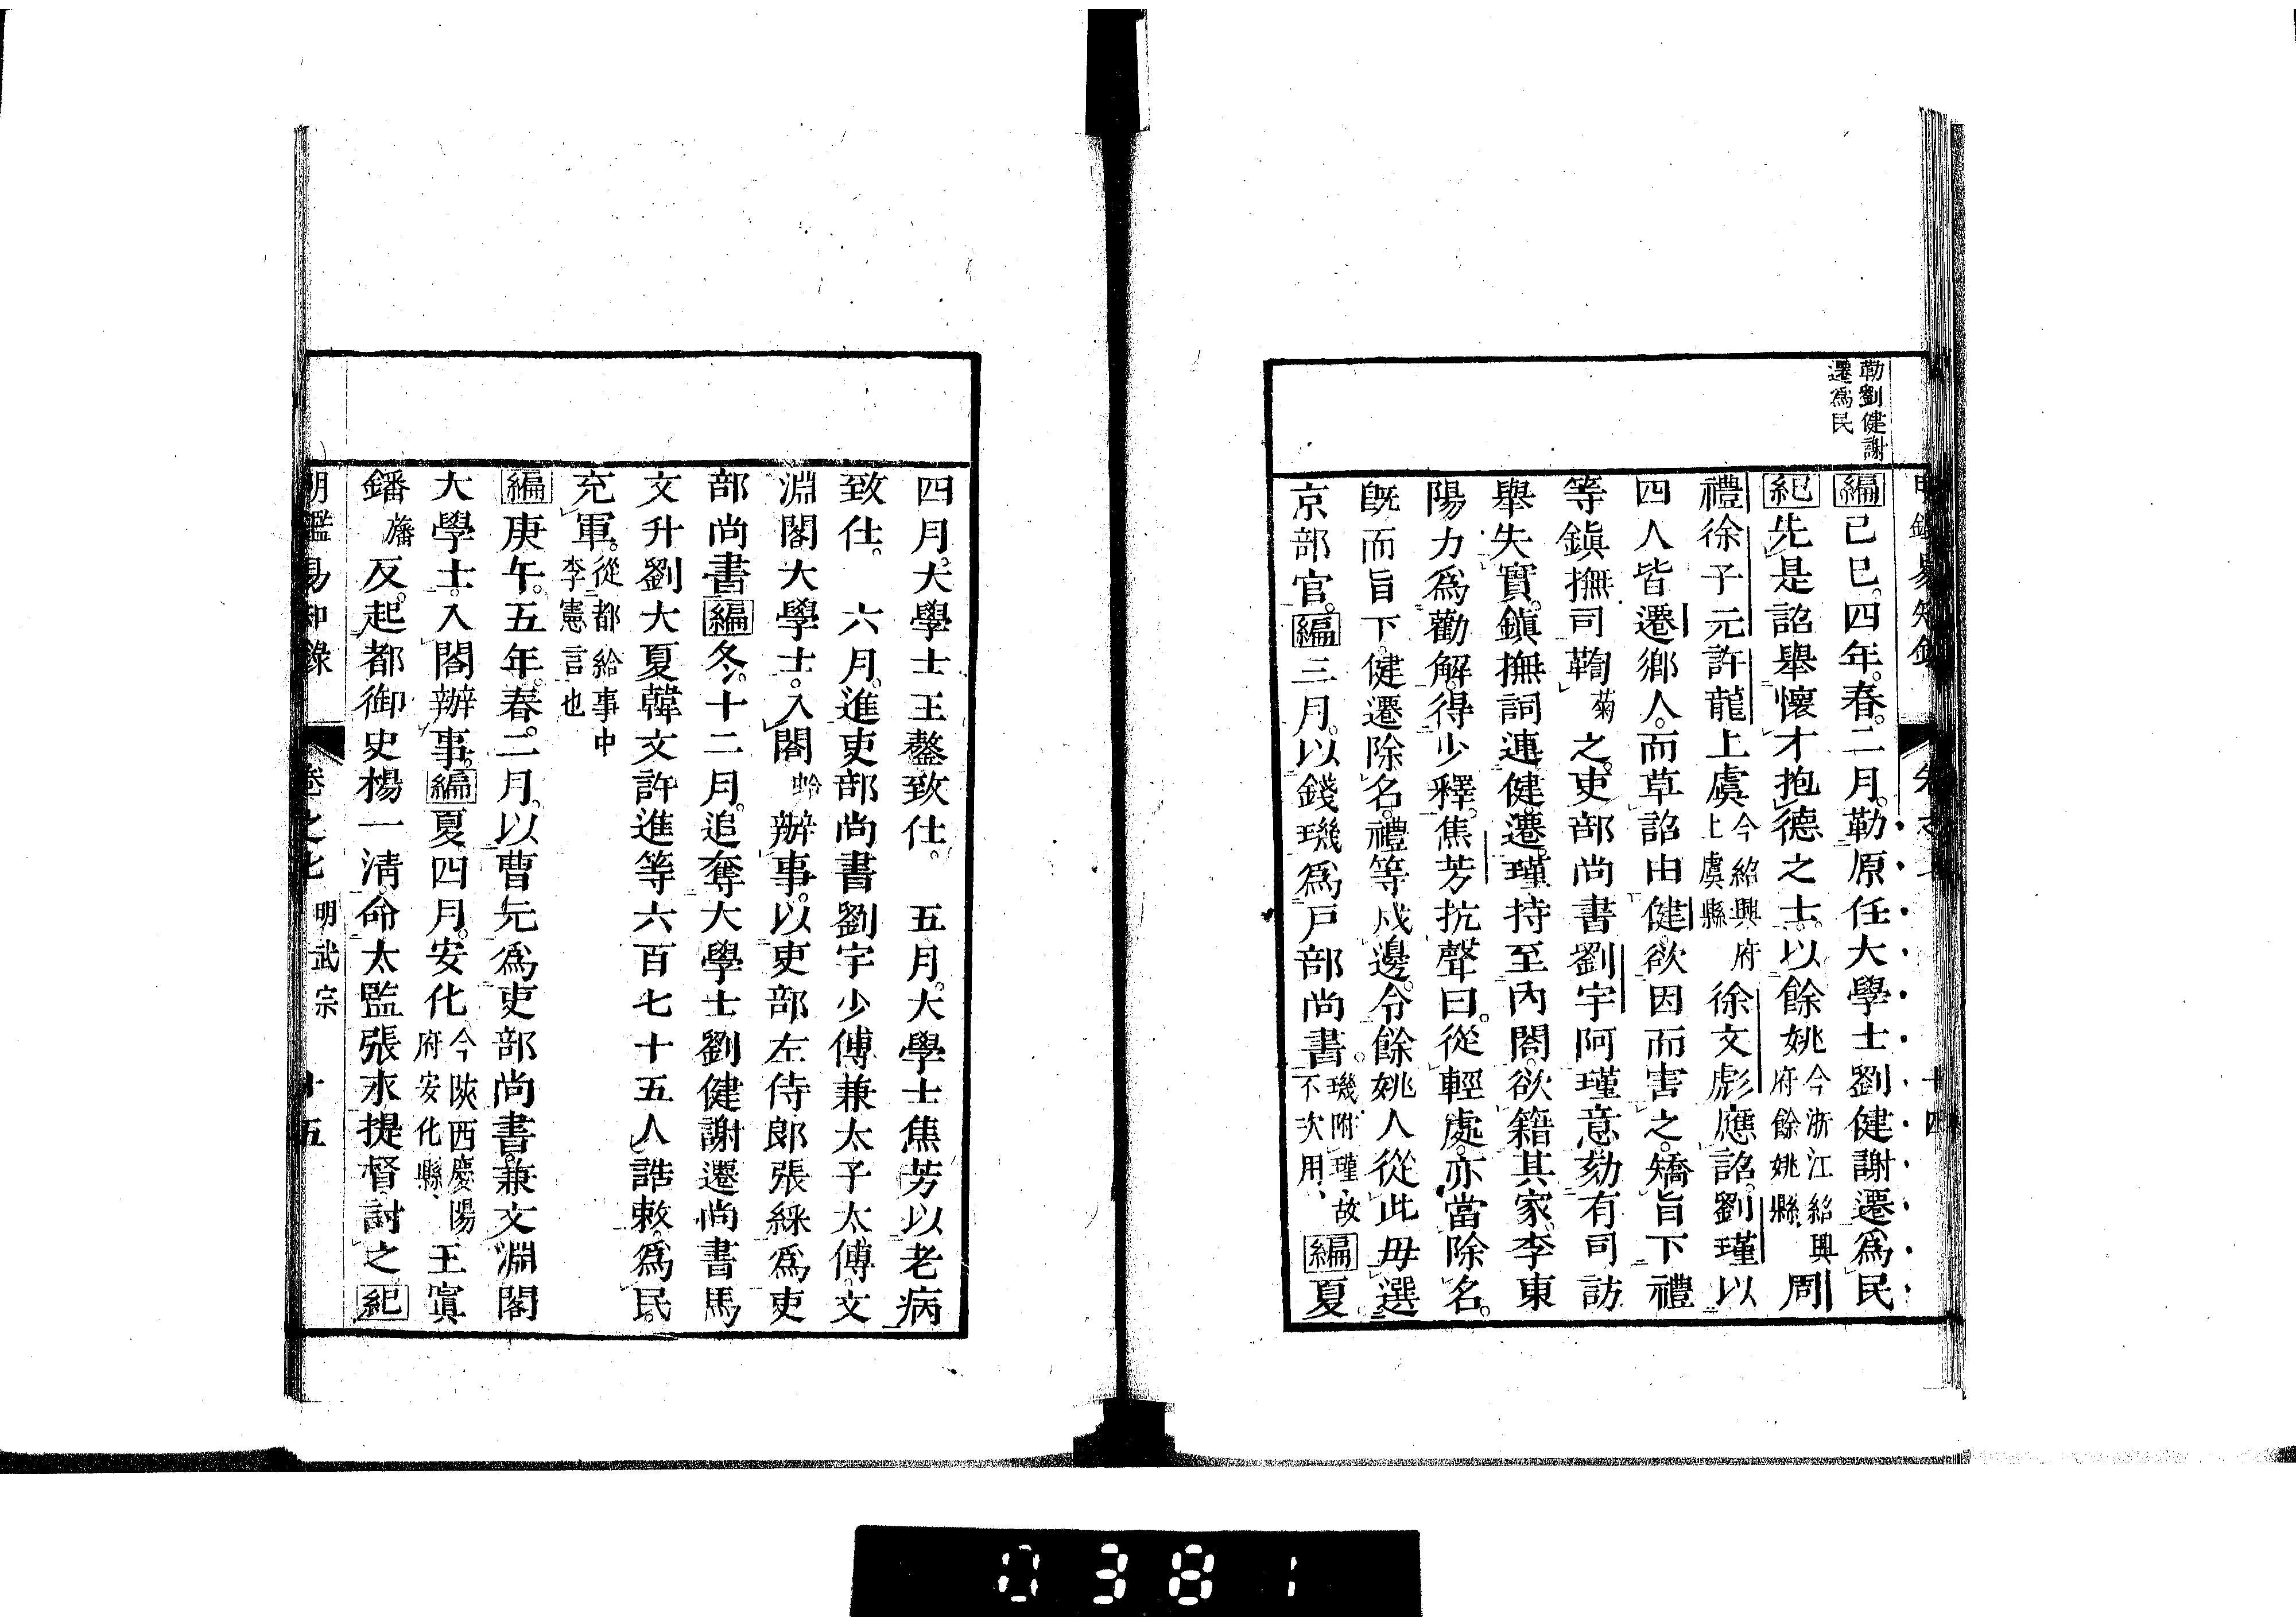 勒劉健謝
遷爲民
編己巳。四年。春。二月。勒原任大學士劉健謝遷爲民
紀先是詔舉懷才抱德之士。以餘姚今浙江紹興府餘姚縣、周
禮徐子元許龍上虞今紹興府上虞縣徐文彪應詔。劉瑾以
四人皆遷鄉人。而草詔由健。欲因而害之。矯旨下禮
等鎭撫司鞫菊之。吏部尚書劉宇阿瑾意劾有司訪
舉失實。鎭撫詞連健遷。瑾持至內閣。欲籍其家。李東
陽力爲勸解。得少釋。焦芳抗聲曰。從輕處。亦當除名。
旣而旨下。健遷除名。禮等戍邊。令餘姚人從此毋選
京部官。編三月。以錢璣爲戸部尚書。璣附瑾、故不次用、編夏
四月。大學士王鏊致仕。　五月。大學士焦芳以老病
致仕。　六月。進吏部尚書劉宇少傅兼太子太傅。文
淵閣大學士。入閣蛤辦事。以吏部左侍郎張綵爲吏
部尚書編冬。十二月。追奪大學士劉健謝遷尚書馬
文升劉大夏韓文許進等六百七十五人誥敕。爲民
充軍。從都給事中李憲言也
編庚午。五年。春。二月。以曹元爲吏部尚書。兼文淵閣
大學士。入閣辦事。編夏四月。安化今陝西慶陽府安化縣、王寘
鐇旛反。起都御史楊一淸。命太監張永提督討之紀
明鑑易知錄　卷之七　明武宗　十五
0381